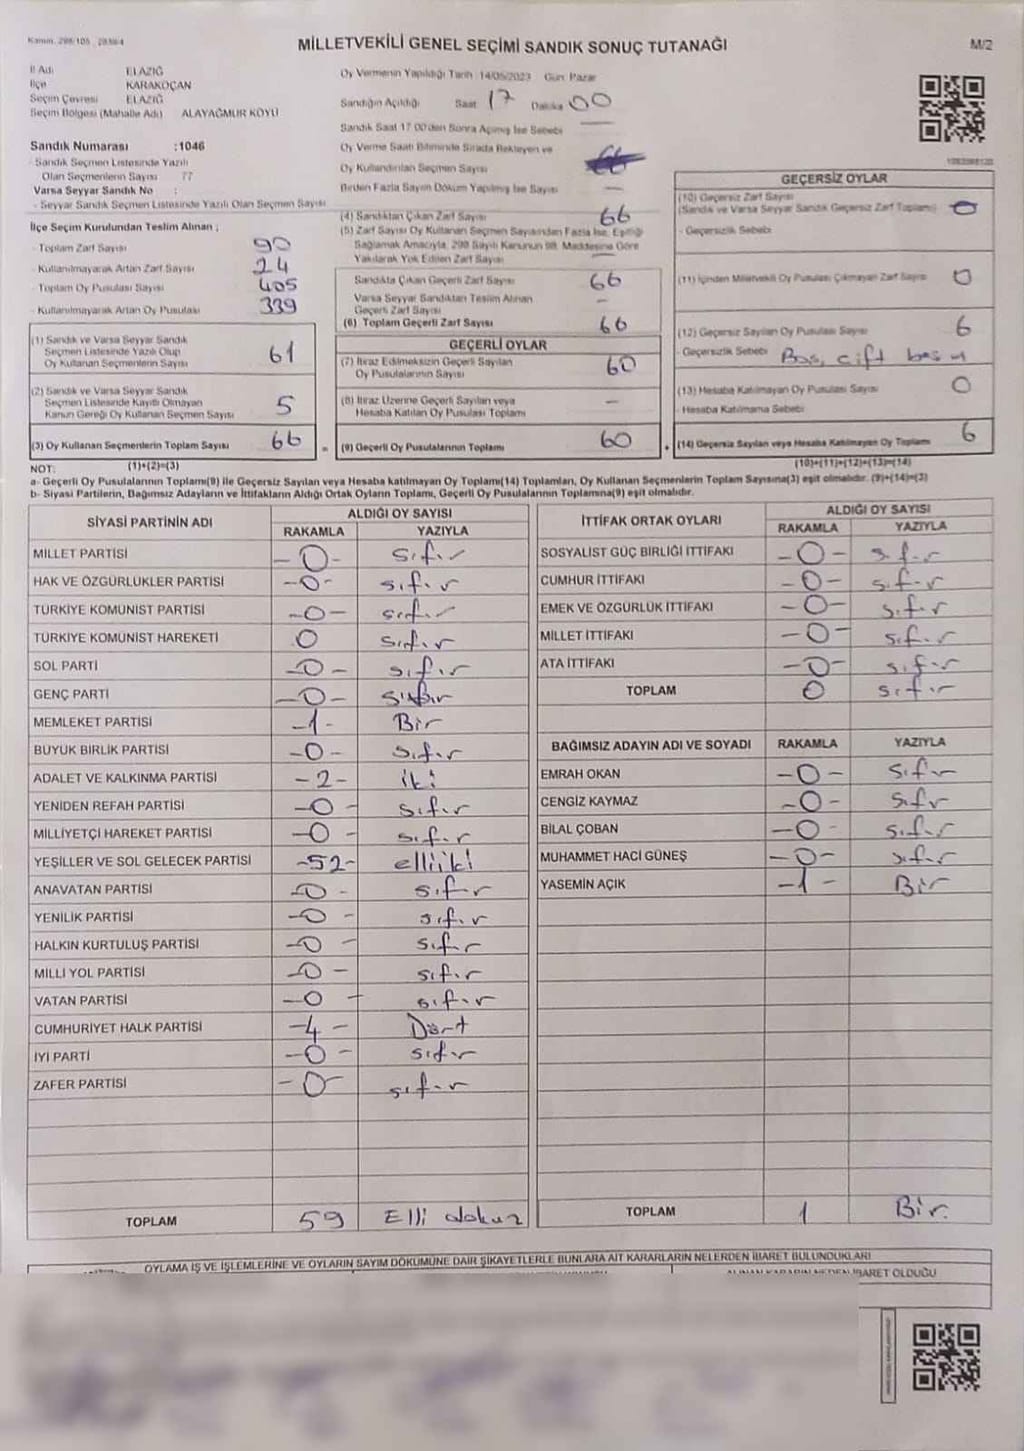 Kanun: 298/105 , 2839/4
MİLLETVEKİLİ GENEL SEÇİMİ SANDIK SONUÇ TUTANAĞI
M/2
İl Adı ELAZIĞ
İlçe KARAKOÇAN
Seçim Çevresi ELAZIĞ
Seçim Bölgesi (Mahalle Adı) ALAYAĞMUR KÖYÜ
Sandık Numarası :1046
- Sandık Seçmen Listesinde Yazılı
Olan Seçmenlerin Sayısı 77
Varsa Seyyar Sandık No :
- Seyyar Sandık Seçmen Listesinde Yazılı Olan Seçmen Sayısı
İlçe Seçim Kurulundan Teslim Alınan ;
- Toplam Zarf Sayısı 90
- Kullanılmayarak Artan Zarf Sayısı 24
- Toplam Oy Pusulası Sayısı 405
- Kullanılmayarak Artan Oy Pusulası 339
(1) Sandık ve Varsa Seyyar Sandık
Seçmen Listesinde Yazılı Olup
Oy Kullanan Seçmenlerin Sayısı 61
(2) Sandık ve Varsa Seyyar Sandık
Seçmen Listesinde Kayıtlı Olmayan
Kanun Gereği Oy Kullanan Seçmen Sayısı 5
(3) Oy Kullanan Seçmenlerin Toplam Sayısı 66
Oy Vermenin Yapıldığı Tarih :14/05/2023 Gün: Pazar
Sandığın Açıldığı Saat 17 Dakika 00
Sandık Saat 17.00'den Sonra Açılmış İse Sebebi —
Oy Verme Saati Bitiminde Sırada Bekleyen ve
Oy Kullandırılan Seçmen Sayısı
Birden Fazla Sayım Döküm Yapılmış İse Sayısı —
(4) Sandıktan Çıkan Zarf Sayısı 66
(5) Zarf Sayısı Oy Kullanan Seçmen Sayısından Fazla İse, Eşitliği
Sağlamak Amacıyla, 298 Sayılı Kanunun 98. Maddesine Göre
Yakılarak Yok Edilen Zarf Sayısı —
Sandıkta Çıkan Geçerli Zarf Sayısı 66
Varsa Seyyar Sandıktan Teslim Alınan
Geçerli Zarf Sayısı —
(6) Toplam Geçerli Zarf Sayısı 66
GEÇERLİ OYLAR
(7) İtiraz Edilmeksizin Geçerli Sayılan
Oy Pusulalarının Sayısı 60
(8) İtiraz Üzerine Geçerli Sayılan veya
Hesaba Katılan Oy Pusulası Toplamı —
= (9) Geçerli Oy Pusulalarının Toplamı 60
GEÇERSİZ OYLAR
(10) Geçersiz Zarf Sayısı
(Sandık ve Varsa Seyyar Sandık Geçersiz Zarf Toplamı) 0
- Geçersizlik Sebebi
(11) İçinden Milletvekili Oy Pusulası Çıkmayan Zarf Sayısı 0
(12) Geçersiz Sayılan Oy Pusulası Sayısı 6
- Geçersizlik Sebebi Boş, çift
(13) Hesaba Katılmayan Oy Pusulası Sayısı 0
- Hesaba Katılmama Sebebi
+ (14) Geçersiz Sayılan veya Hesaba Katılmayan Oy Toplamı 6
NOT: (1)+(2)=(3)
(10)+(11)+(12)+(13)=(14)
a- Geçerli Oy Pusulalarının Toplamı(9) ile Geçersiz Sayılan veya Hesaba katılmayan Oy Toplamı(14) Toplamları, Oy Kullanan Seçmenlerin Toplam Sayısına(3) eşit olmalıdır. (9)+(14)=(3)
b- Siyasi Partilerin, Bağımsız Adayların ve İttifakların Aldığı Ortak Oyların Toplamı, Geçerli Oy Pusulalarının Toplamına(9) eşit olmalıdır.
SİYASİ PARTİNİN ADI ALDIĞI OY SAYISI
RAKAMLA YAZIYLA
MİLLET PARTİSİ -0- sıfır
HAK VE ÖZGÜRLÜKLER PARTİSİ -0- sıfır
TÜRKİYE KOMÜNİST PARTİSİ -0- sıfır
TÜRKİYE KOMÜNİST HAREKETİ 0 sıfır
SOL PARTİ -0- sıfır
GENÇ PARTİ -0- sıfır
MEMLEKET PARTİSİ -1- Bir
BÜYÜK BİRLİK PARTİSİ -0- sıfır
ADALET VE KALKINMA PARTİSİ -2- iki
YENİDEN REFAH PARTİSİ -0- sıfır
MİLLİYETÇİ HAREKET PARTİSİ -0- sıfır
YEŞİLLER VE SOL GELECEK PARTİSİ -52- elliiki
ANAVATAN PARTİSİ -0- sıfır
YENİLİK PARTİSİ -0- sıfır
HALKIN KURTULUŞ PARTİSİ -0- sıfır
MİLLİ YOL PARTİSİ -0- sıfır
VATAN PARTİSİ -0- sıfır
CUMHURİYET HALK PARTİSİ -4- Dört
İYİ PARTİ -0- sıfır
ZAFER PARTİSİ -0- sıfır
TOPLAM 59 Elli dokuz
İTTİFAK ORTAK OYLARI ALDIĞI OY SAYISI
RAKAMLA YAZIYLA
SOSYALİST GÜÇ BİRLİĞİ İTTİFAKI -0- sıfır
CUMHUR İTTİFAKI -0- sıfır
EMEK VE ÖZGÜRLÜK İTTİFAKI -0- sıfır
MİLLET İTTİFAKI -0- sıfır
ATA İTTİFAKI -0- sıfır
TOPLAM 0 sıfır
BAĞIMSIZ ADAYIN ADI VE SOYADI RAKAMLA YAZIYLA
EMRAH OKAN -0- sıfır
CENGİZ KAYMAZ -0- sıfır
BİLAL ÇOBAN -0- sıfır
MUHAMMET HACİ GÜNEŞ -0- sıfır
YASEMİN AÇIK -1- Bir
TOPLAM 1 Bir
OYLAMA İŞ VE İŞLEMLERİNE VE OYLARIN SAYIM DÖKÜMÜNE DAİR ŞİKAYETLERLE BUNLARA AİT KARARLARIN NELERDEN İBARET BULUNDUKLARI
ALINAN KARARIN NEDEN İBARET OLDUĞU